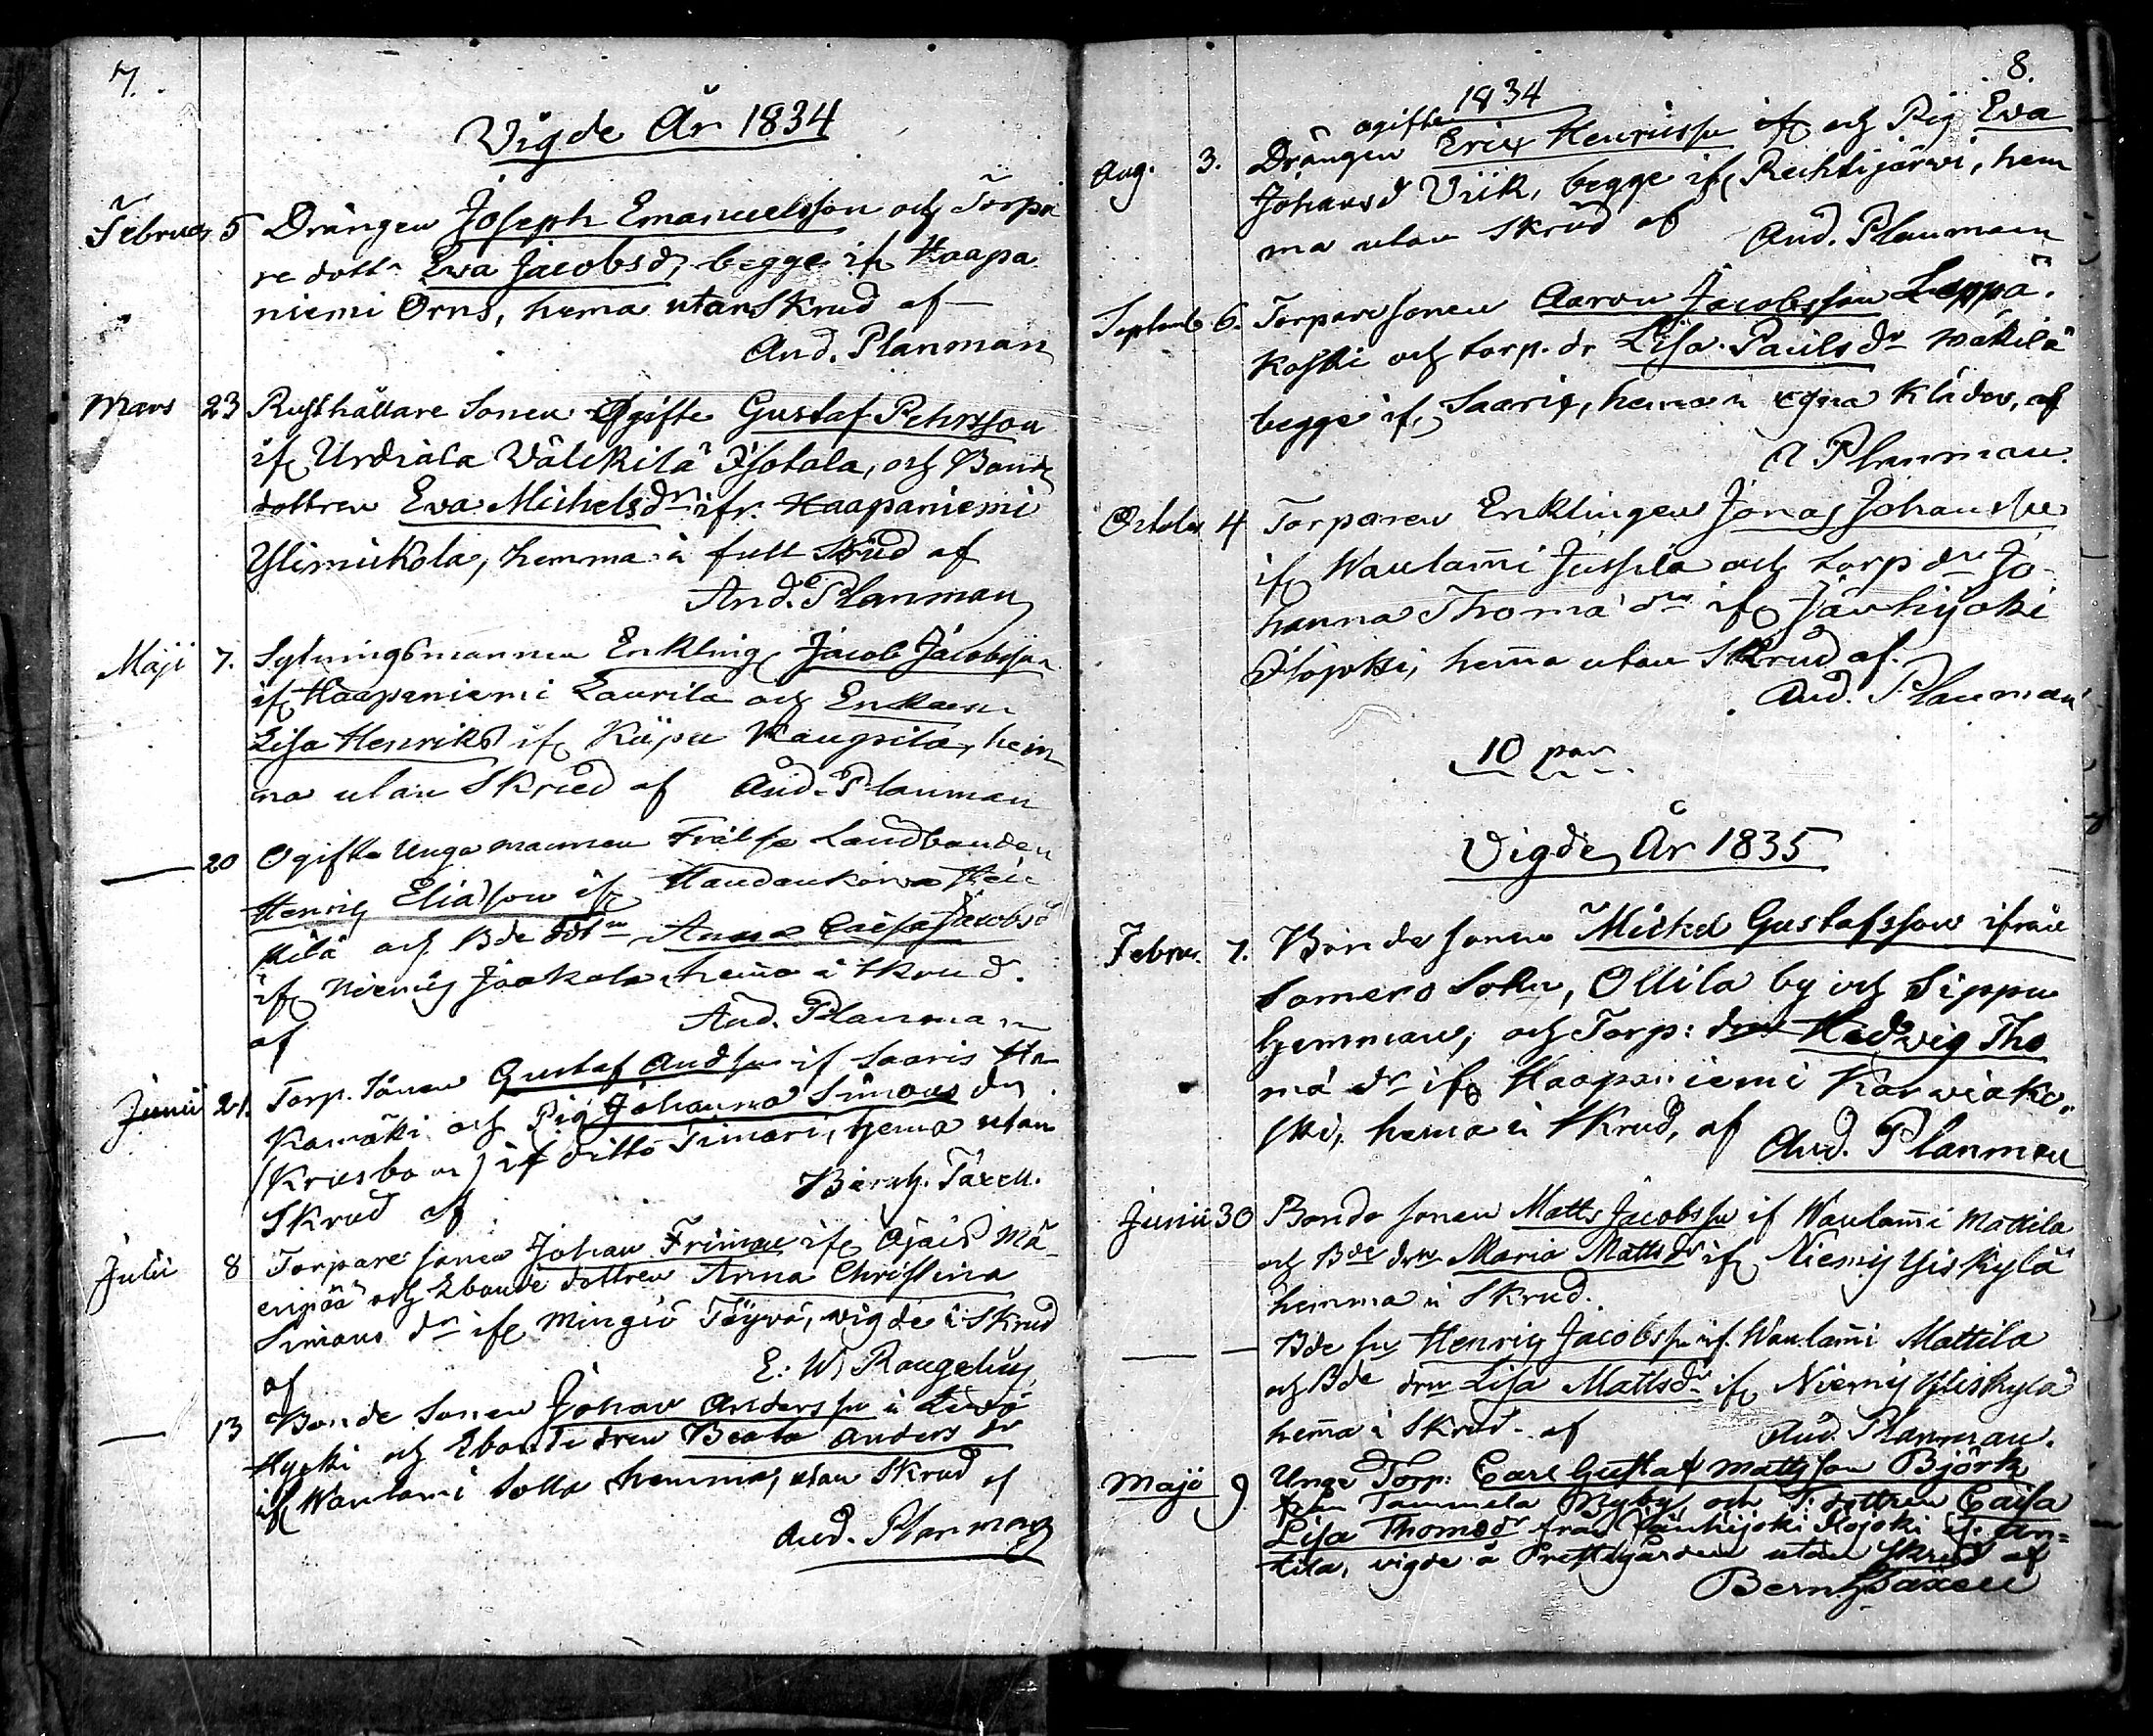 7.
Vigde År 1834
Februar 5 Drängen Joseph Emanuelsson och Torpa
re dottr Ewa Jacobsdr, begge ifr Haapa
niemi Örns, hema utan Skrud af
And. Planman
Mars 23 Rusthållare Sonen Ogifte Gustaf Pehrsson
ifr Urdiala Wälikilä Isotala, och Bonde
dottren Ewa Michelsdr ifr. Haapaniemi
Ylimickola, hemma i full Skrud af
And. Planman
Maji 7. Sytningsmannen Enkling Jacob Jacobsson
ifr Haapaniemi Laurila och Enkan
Lisa Henriksd ifr Kåpu Kaupila, hem
ma utan Skrud af And. Planman
— 20 Ogifte Unge mannen Frälse Landbonden
Henric Eliasson ifr
kilä och Bde dotrn Anna Caisa Jacobsd
ifr Niemis Jaakola, hema i Skrud.
af And. Planman
Junii 21. Torp. Sonen Gustaf Andsson if Saaris Ha
kamäki och Pig Johanna Simons dr
( ) if ditto Simari, hema utan
Skrud af Bernh. Taxell.
Julii 8 Torpare sonen Johan Friman ifr Ojais Mä-
enpää och Ebonde dottren Anna Christina
Simons dr ifr Mingiö Töyrä, vigde i Skrud
af E. W. Rangelius
— 13 Bonde Sonen Johan Andersson i
Hycki och Ebonde dren Beata Anders dr
ifr Waulami Sotta hemma, utan Skrud af
And. Planman
8.
1834
ogifte
Aug. 3. Drängen Eric Henricsson ifr och Pig Ewa
Johansd Viik, begge ifr Rechtijärwi, hem
ma utan Skrud af And. Planman
Septemb 6. Torpare sonen Aaron Jacobsson Leppä-
koski och torp. dr Lisa Paulsdr Mäkilä
begge ifr Saaris, hema i egna kläder, af
A Planman.
October 4 Torparen Enklingen Jonas Johansson
ifr Waulami Jussila och torp drn Jo-
hanna Thomä drn ifr Jänhijoki
Ilojoki, hema utan Skrud af.
And. Planman
10 par
Vigde År 1835
Februr. 7. Bonde sonen Mickel Gustafsson ifrån
Somero Sokn, Ollila by och Sippu
hemman, och Torp: drn Hedwig Tho
mä dr ifr Haapaniemi Karwiako-
ski, hema i Skrud, af And. Planman
Junii 30 Bonde sonen Matts Jacobsson if Waulami Mattila
och Bde drn Maria Mattsdr ifr Niemis Yliskylä
hemma i Skrud.
— — Bde sn Henric Jacobsson if. Waulami Mattila
och Bde drn Lisa Mattsdr ifr Niemis Yliskylä
hema i Skrud. af And. Planman.
Maji 9 Unge Torp: Carl Gustaf Mattsson Björk
från Tammela Byby och T: dottren Caisa
Lisa Thomedr från Jänhijoki Kojoki if. An=
tila, vigde å Prestgården utan Skrud af
Bernh Taxell